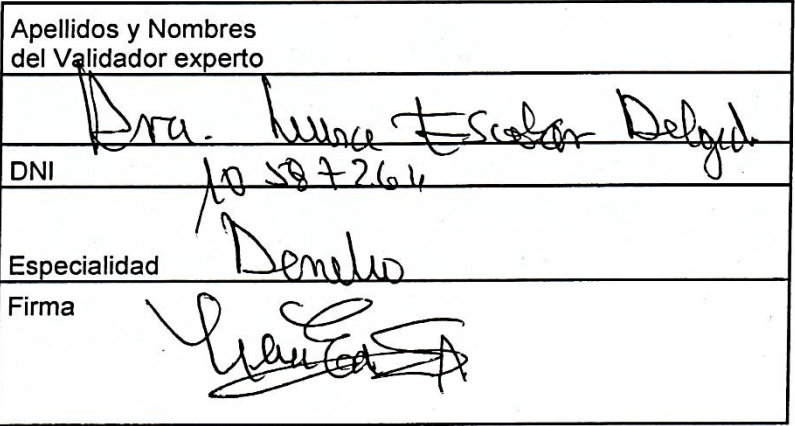 Apellidos y Nombres
del Validador experto
Dra. Luisa Escobar Delgad.
DNI 10587264
Especialidad Derecho
Firma